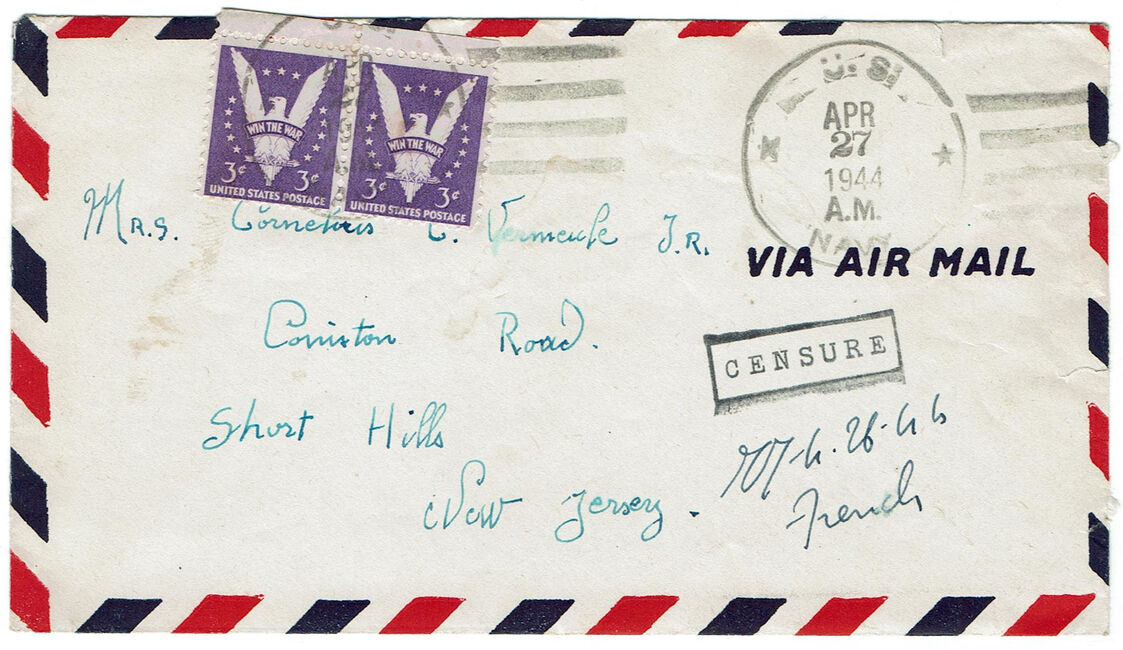 WIN THE WAR
3¢ 3¢
UNITED STATES POSTAGE
WIN THE WAR
3¢ 3¢
UNITED STATES POSTAGE
U.S.
APR
27
1944
A.M.
NAVY
VIA AIR MAIL
Mrs. Cornelius C. Vermeule Jr.
Coniston Road.
Short Hills
New Jersey.
CENSURE
French